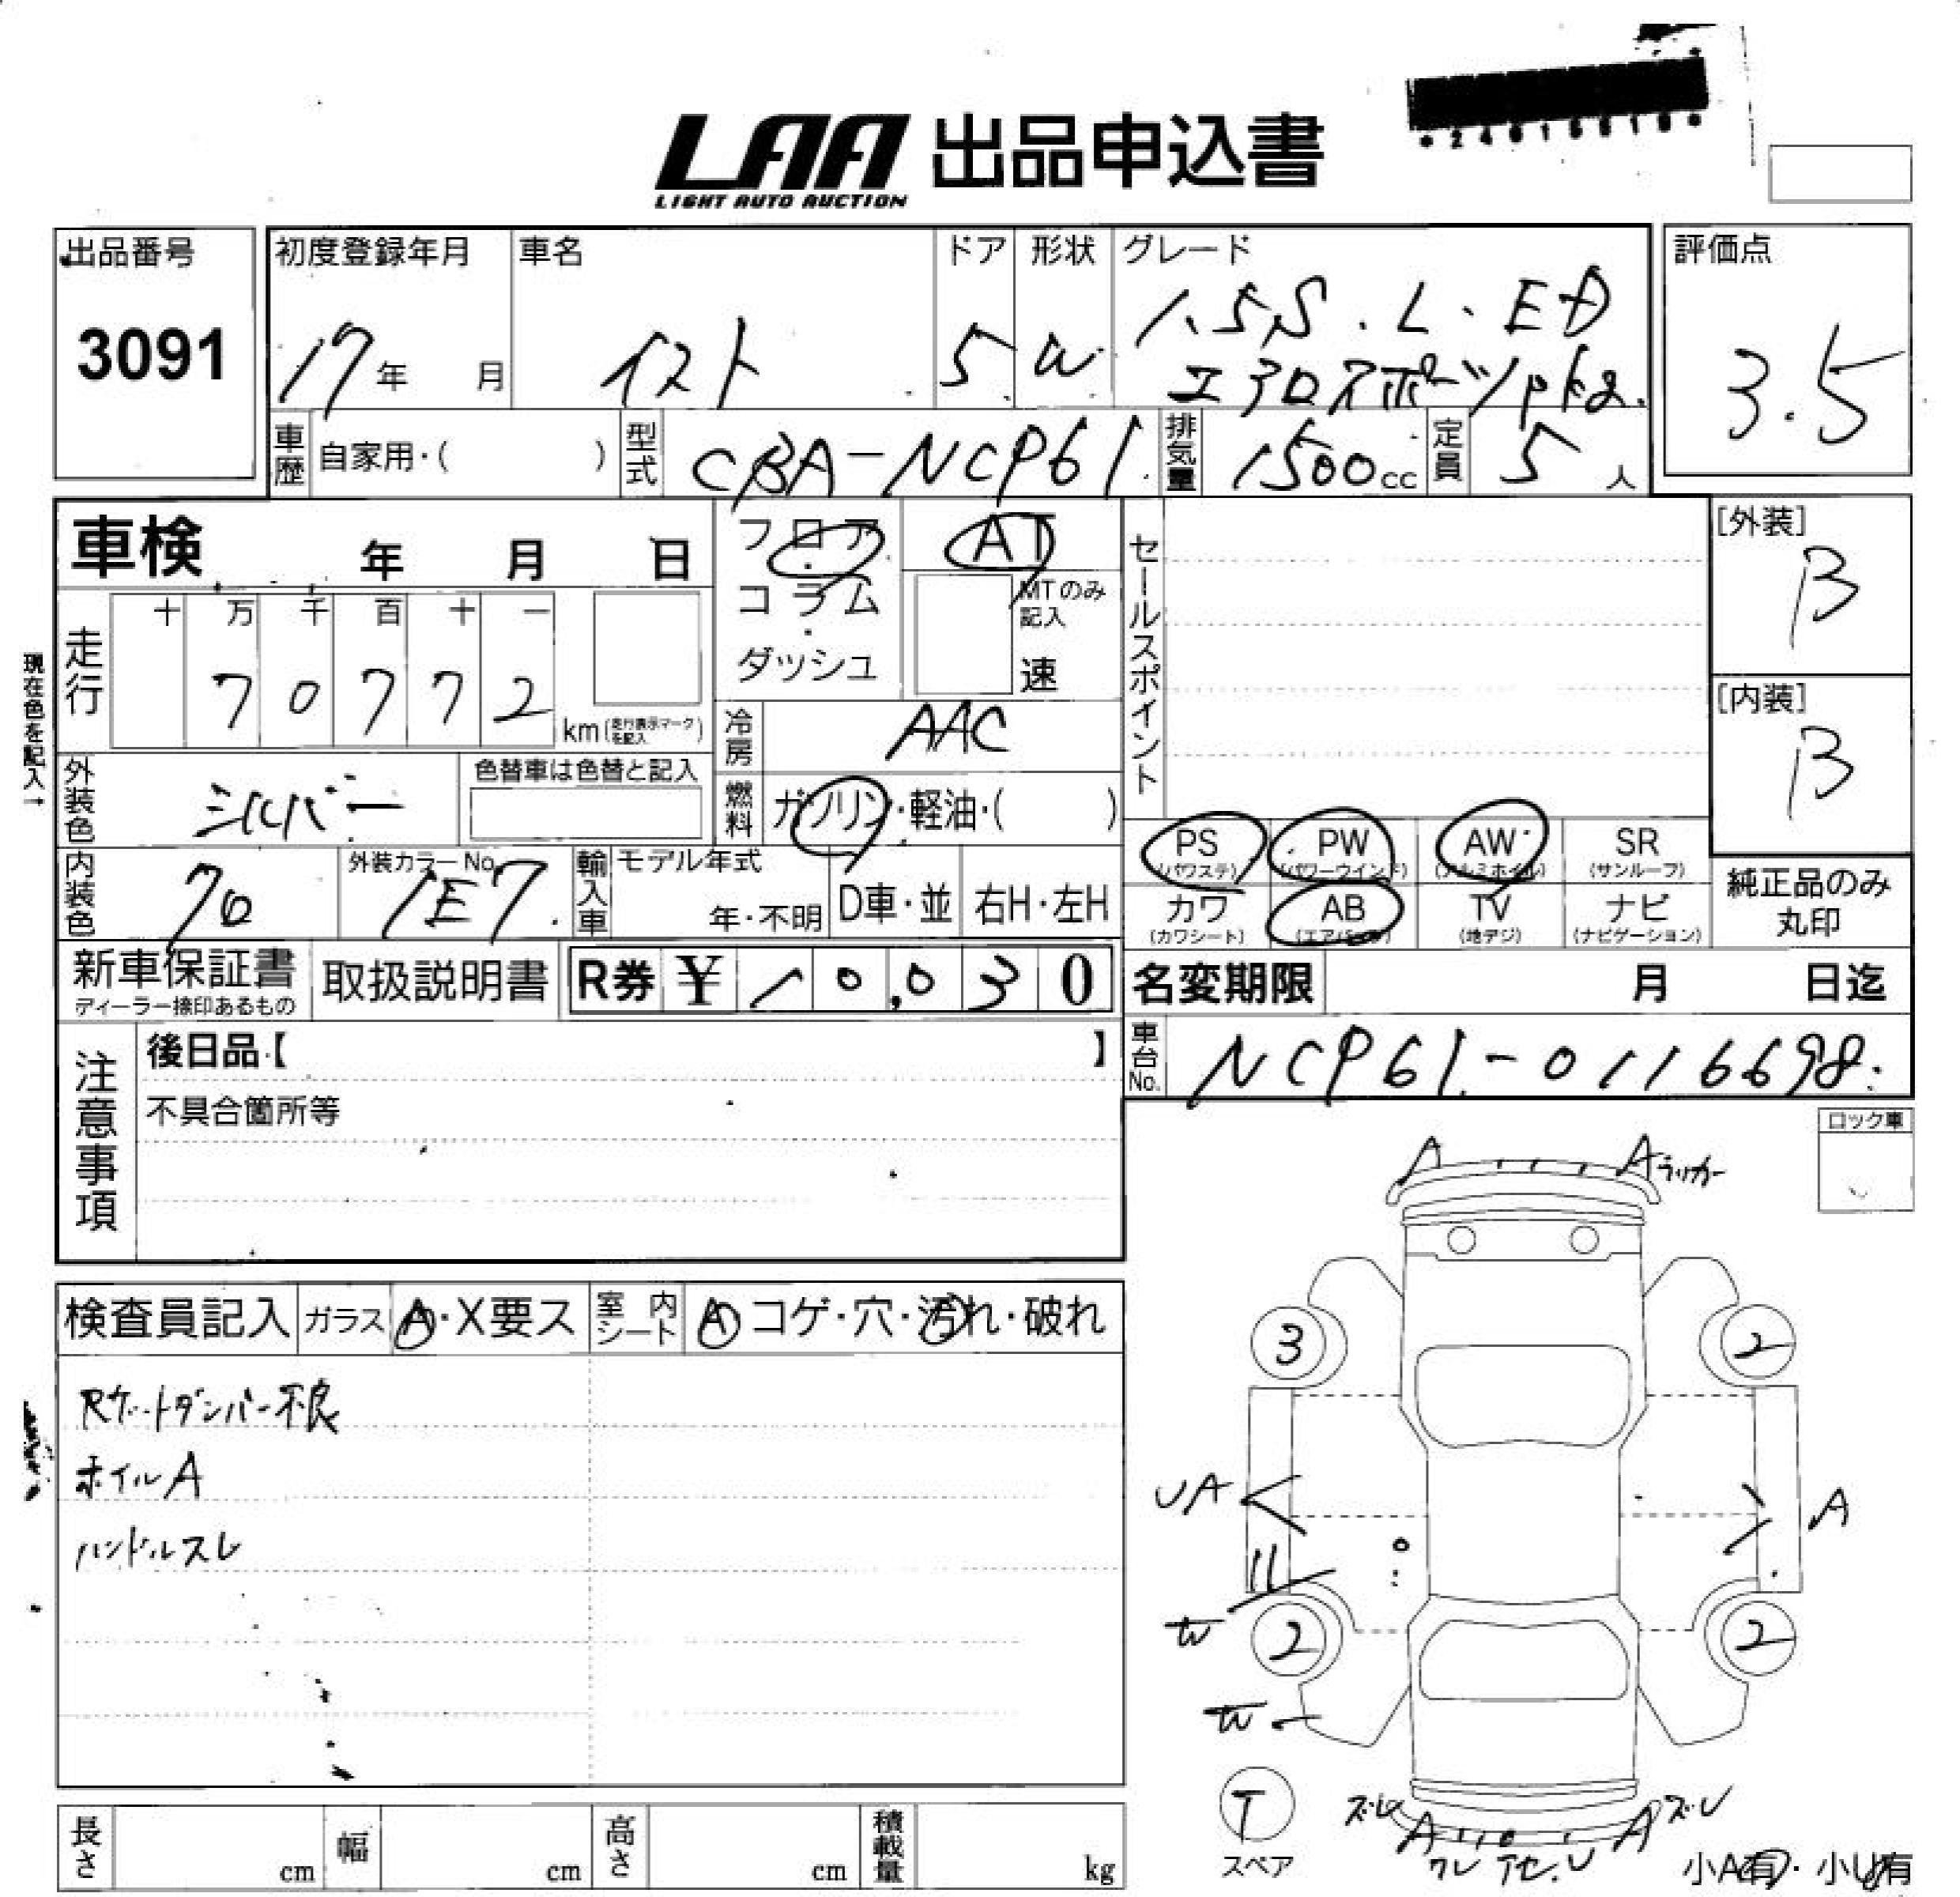 LAA 出品申込書
LIGHT AUTO AUCTION
出品番号
3091
初度登録年月
17年 月
車名
イスト
ドア
5
形状
W
グレード
1.5S.L.ED
エアロスポーツpkg.
評価点
3.5
車歴 自家用・( )
型式 CBA-NCP61
排気量 1500cc
定員 5人
車検 年 月 日
フロア・コラム・ダッシュ
AT
MTのみ記入
速
セールスポイント
[外装]
B
[内装]
B
現在色を記入→
走行
十 万 千 百 十 一
7 0 7 7 2
km(走行表示マークを記入)
冷房 AAC
外装色 シルバー
色替車は色替と記入
燃料 ガソリン・軽油・( )
PS (パワステ)
PW (パワーウインド)
AW (アルミホイル)
SR (サンルーフ)
内装色
外装カラーNo. 1E7
輸入車
モデル年式
年・不明
D車・並
右H・左H
カワ (カワシート)
AB (エアバッグ)
TV (地デジ)
ナビ (ナビゲーション)
純正品のみ丸印
新車保証書
ディーラー捺印あるもの
取扱説明書
R券 ¥10,030
名変期限 月 日迄
車台No. NCP61-0116698
注意事項
後日品【 】
不具合箇所等
ロック車
A A ラッカー
検査員記入
ガラス A・X要ス
室内シート A コゲ・穴・汚れ・破れ
Rゲートダンパー不良
ホイルA
ハンドルスレ
3 2
UA A
W
2 2
W
T
スペア
ズレ A A ズレ
ワレ
小A有・小U有
長さ cm
幅 cm
高さ cm
積載量 kg